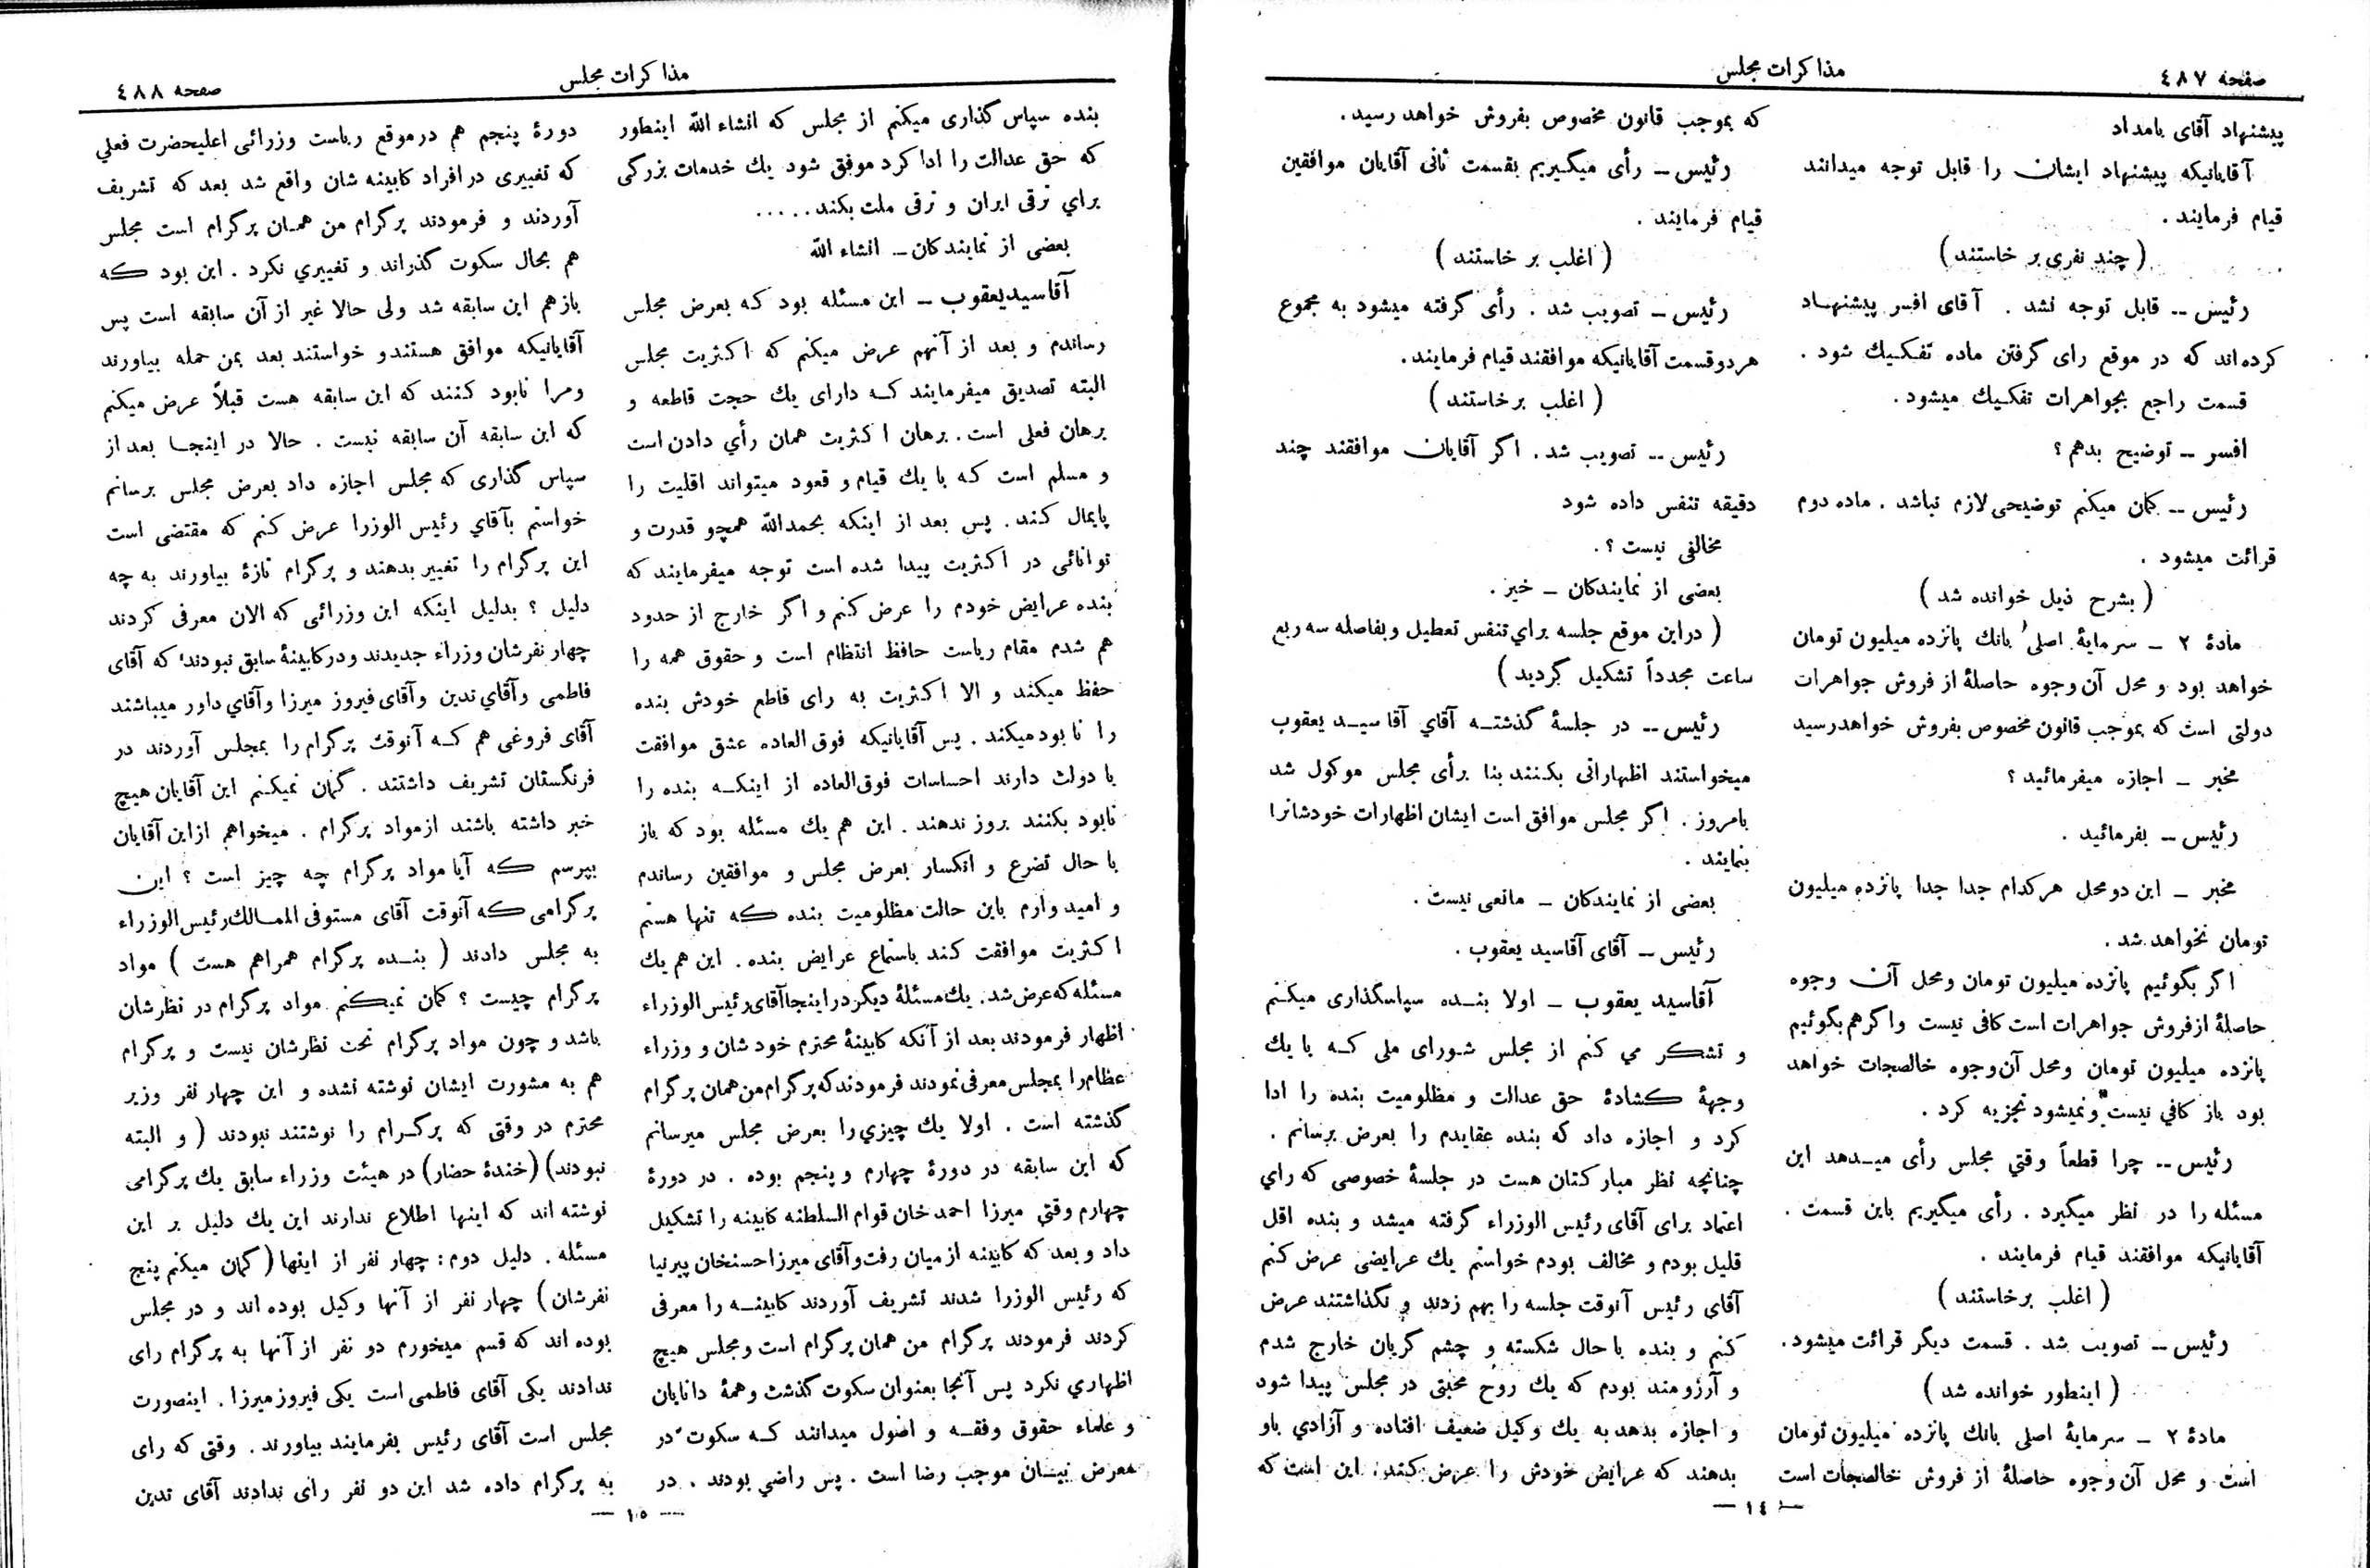 صفحه ٤٨٧
مذاکرات مجلس
پیشنهاد آقای بامداد
آقایانیکه پیشنهاد ایشان را قابل توجه میدانند
قیام فرمایند .
( چند نفری بر خاستند )
رئیس -- قابل توجه نشد . آقای افسر پیشنهاد
کرده‌اند که در موقع رای گرفتن ماده تفکیك شود .
قسمت راجع بجواهرات تفکیك میشود .
افسر -- توضیح بدهم ؟
رئیس -- گمان میکنم توضیحی لازم نباشد . ماده دوم
قرائت میشود .
( بشرح ذیل خوانده شد )
مادهٔ ٢ ــ سرمایهٔ اصلی بانك پانزده میلیون تومان
خواهد بود و محل آن وجوه حاصلهٔ از فروش جواهرات
دولتی است که بموجب قانون مخصوص بفروش خواهد رسید
مخبر ــ اجازه میفرمائید ؟
رئیس ــ بفرمائید .
مخبر ــ این دو محل هر کدام جدا جدا پانزده میلیون
تومان نخواهد شد .
اگر بگوئیم پانزده میلیون تومان ومحل آن وجوه
حاصلهٔ ازفروش جواهرات است کافی نیست واگرهم بگوئیم
پانزده میلیون تومان ومحل آن وجوه خالصجات خواهد
بود باز کافي نیست ونمیشود تجزیه کرد .
رئیس -- چرا قطعاً وقتي مجلس رأی میدهد این
مسئله را در نظر میگیرد . رأی میگیریم باین قسمت .
آقایانیکه موافقند قیام فرمایند .
( اغلب برخاستند )
رئیس -- تصویب شد . قسمت دیگر قرائت میشود .
( اینطور خوانده شد )
مادهٔ ٢ ــ سرمایهٔ اصلی بانك پانزده میلیون تومان
است و محل آن وجوه حاصلهٔ از فروش خالصجات است
که بموجب قانون مخصوص بفروش خواهد رسید .
رئیس ــ رأی میگیریم بقسمت ثانی آقایان موافقین
قیام فرمایند .
( اغلب بر خاستند )
رئیس ــ تصویب شد . رأی گرفته میشود به مجموع
هردوقسمت آقایانیکه موافقند قیام فرمایند .
( اغلب برخاستند )
رئیس -- تصویب شد . اگر آقایان موافقند چند
دقیقه تنفس داده شود
مخالفی نیست ؟ .
بعضی از نمایندکان ــ خیر .
( دراین موقع جلسه براي تنفس تعطیل وبفاصله سه ربع
ساعت مجدداً تشکیل گردید )
رئیس -- در جلسهٔ گذشته آقاي آقا سید یعقوب
میخواستند اظهاراتی بکنند بنا برأی مجلس موکول شد
بامروز . اگر مجلس موافق است ایشان اظهارات خودشانرا
بنمایند .
بعضی از نمایندکان ــ مانعی نیست .
رئیس ــ آقای آقاسید یعقوب .
آقاسید یعقوب ــ اولا بنده سپاسگذاری میکنم
و تشکر می کنم از مجلس شورای ملی که با یك
وجههٔ کشادهٔ حق عدالت و مظلومیت بنده را ادا
کرد و اجازه داد که بنده عقایدم را بعرض برسانم .
چنانچه نظر مبارکتان هست در جلسهٔ خصوصی که راي
اعتماد برای آقای رئیس الوزراء گرفته میشد و بنده اقل
قلیل بودم و مخالف بودم خواستم یك عرایضی عرض کنم
آقای رئیس آنوقت جلسه را بهم زدند و نگذاشتند عرض
کنم و بنده با حال شکسته و چشم گریان خارج شدم
و آرزومند بودم که یك روح محبتی در مجلس پیدا شود
و اجازه بدهد به یك وکیل ضعیف افتاده و آزادي باو
بدهند که عرایض خودش را عرض کند . این است که
— ١٤ —
مذاکرات مجلس
صفحه ٤٨٨
بنده سپاس گذاری میکنم از مجلس که انشاء الله اینطور
که حق عدالت را ادا کرد موفق شود یك خدمات بزرگی
براي ترقی ایران و ترقی ملت بکند . . . . .
بعضی از نمایندکان ــ انشاء الله
آقاسید یعقوب ــ این مسئله بود که بعرض مجلس
رساندم و بعد از آنهم عرض میکنم که اکثریت مجلس
البته تصدیق میفرمایند که دارای یك حجت قاطعه و
برهان فعلی است . برهان اکثریت همان رأي دادن است
و مسلم است که با یك قیام و قعود میتواند اقلیت را
پایمال کند . پس بعد از اینکه بحمدالله همچو قدرت و
توانائی در اکثریت پیدا شده است توجه میفرمایند که
بنده عرایض خودم را عرض کنم و اگر خارج از حدود
هم شدم مقام ریاست حافظ انتظام است و حقوق همه را
حفظ میکند و الا اکثریت به رای قاطع خودش بنده
را نابود میکند . پس آقایانیکه فوق العاده عشق موافقت
با دولت دارند احساسات فوق‌العاده از اینکه بنده را
نابود بکنند بروز ندهند . این هم یك مسئله بود که باز
با حال تضرع و انکسار بعرض مجلس و موافقین رساندم
و امید وارم باین حالت مظلومیت بنده که تنها هستم
اکثریت موافقت کند باستماع عرایض بنده . این هم یك
مسئله که عرض شد . یك مسئلهٔ دیگر در اینجا آقای رئیس الوزراء
اظهار فرمودند بعد از آنکه کابینهٔ محترم خودشان و وزراء
عظام را بمجلس معرفی نمودند فرمودند که پرگرام من همان پرگرام
گذشته است . اولا یك چیزي را بعرض مجلس میرسانم
که این سابقه در دورهٔ چهارم و پنجم بوده . در دورهٔ
چهارم وقتي میرزا احمد خان قوام السلطنه کابینه را تشکیل
داد و بعد که کابینه از میان رفت و آقای میرزا حسنخان پیرنیا
که رئیس الوزرا شدند تشریف آوردند کابینه را معرفی
کردند فرمودند پرگرام من همان پرگرام است و مجلس هیچ
اظهاري نکرد پس آنجا بعنوان سکوت گذشت و همهٔ دانایان
و علماء حقوق وفقه و اصول میدانند که سکوت در
معرض بیان موجب رضا است . پس راضي بودند . در
دورهٔ پنجم هم در موقع ریاست وزرائی اعلیحضرت فعلي
که تغییری در افراد کابینه شان واقع شد بعد که تشریف
آوردند و فرمودند پرگرام من همان پرگرام است مجلس
هم بحال سکوت گذراند و تغییري نکرد . این بود که
بازهم این سابقه شد ولی حالا غیر از آن سابقه است پس
آقایانیکه موافق هستندو خواستند بعد بمن حمله بیاورند
ومرا نابود کنند که این سابقه هست قبلاً عرض میکنم
که این سابقه آن سابقه نیست . حالا در اینجا بعد از
سپاس گذاری که مجلس اجازه داد بعرض مجلس برسانم
خواستم بآقاي رئیس الوزرا عرض کنم که مقتضی است
این پرگرام را تغییر بدهند و پرگرام تازهٔ بیاورند به چه
دلیل ؟ بدلیل اینکه این وزرائی که الان معرفی کردند
چهار نفرشان وزراء جدیدند ودرکابینهٔ سابق نبودند که آقای
فاطمی وآقاي تدین وآقای فیروز میرزا وآقاي داور میباشند
آقای فروغی هم که آنوقت پرگرام را بمجلس آوردند در
فرنگستان تشریف داشتند . گمان نمیکنم این آقایان هیچ
خبر داشته باشند ازمواد پرگرام . میخواهم ازاین آقایان
بپرسم که آیا مواد پرگرام چه چیز است ؟ این
پرگرامی که آنوقت آقای مستوفی الممالك رئیس الوزراء
به مجلس دادند ( بنده پرگرام همراهم هست ) مواد
پرگرام چیست ؟ گمان نمیکنم مواد پرگرام در نظرشان
باشد و چون مواد پرگرام تحت نظرشان نیست و پرگرام
هم به مشورت ایشان نوشته نشده و این چهار نفر وزیر
محترم در وقتی که پرگرام را نوشتند نبودند ( و البته
نبودند) (خندهٔ حضار) در هیئت وزراء سابق یك پرگرامی
نوشته اند که اینها اطلاع ندارند این یك دلیل بر این
مسئله . دلیل دوم : چهار نفر از اینها ( گمان میکنم پنج
نفرشان ) چهار نفر از آنها وکیل بوده اند و در مجلس
بوده اند که قسم میخورم دو نفر از آنها به پرگرام رای
ندادند یکی آقای فاطمی است یکی فیروز میرزا . اینصورت
مجلس است آقای رئیس بفرمایند بیاورند . وقتی که رای
به پرگرام داده شد این دو نفر رای ندادند آقای تدین
— ١٥ —